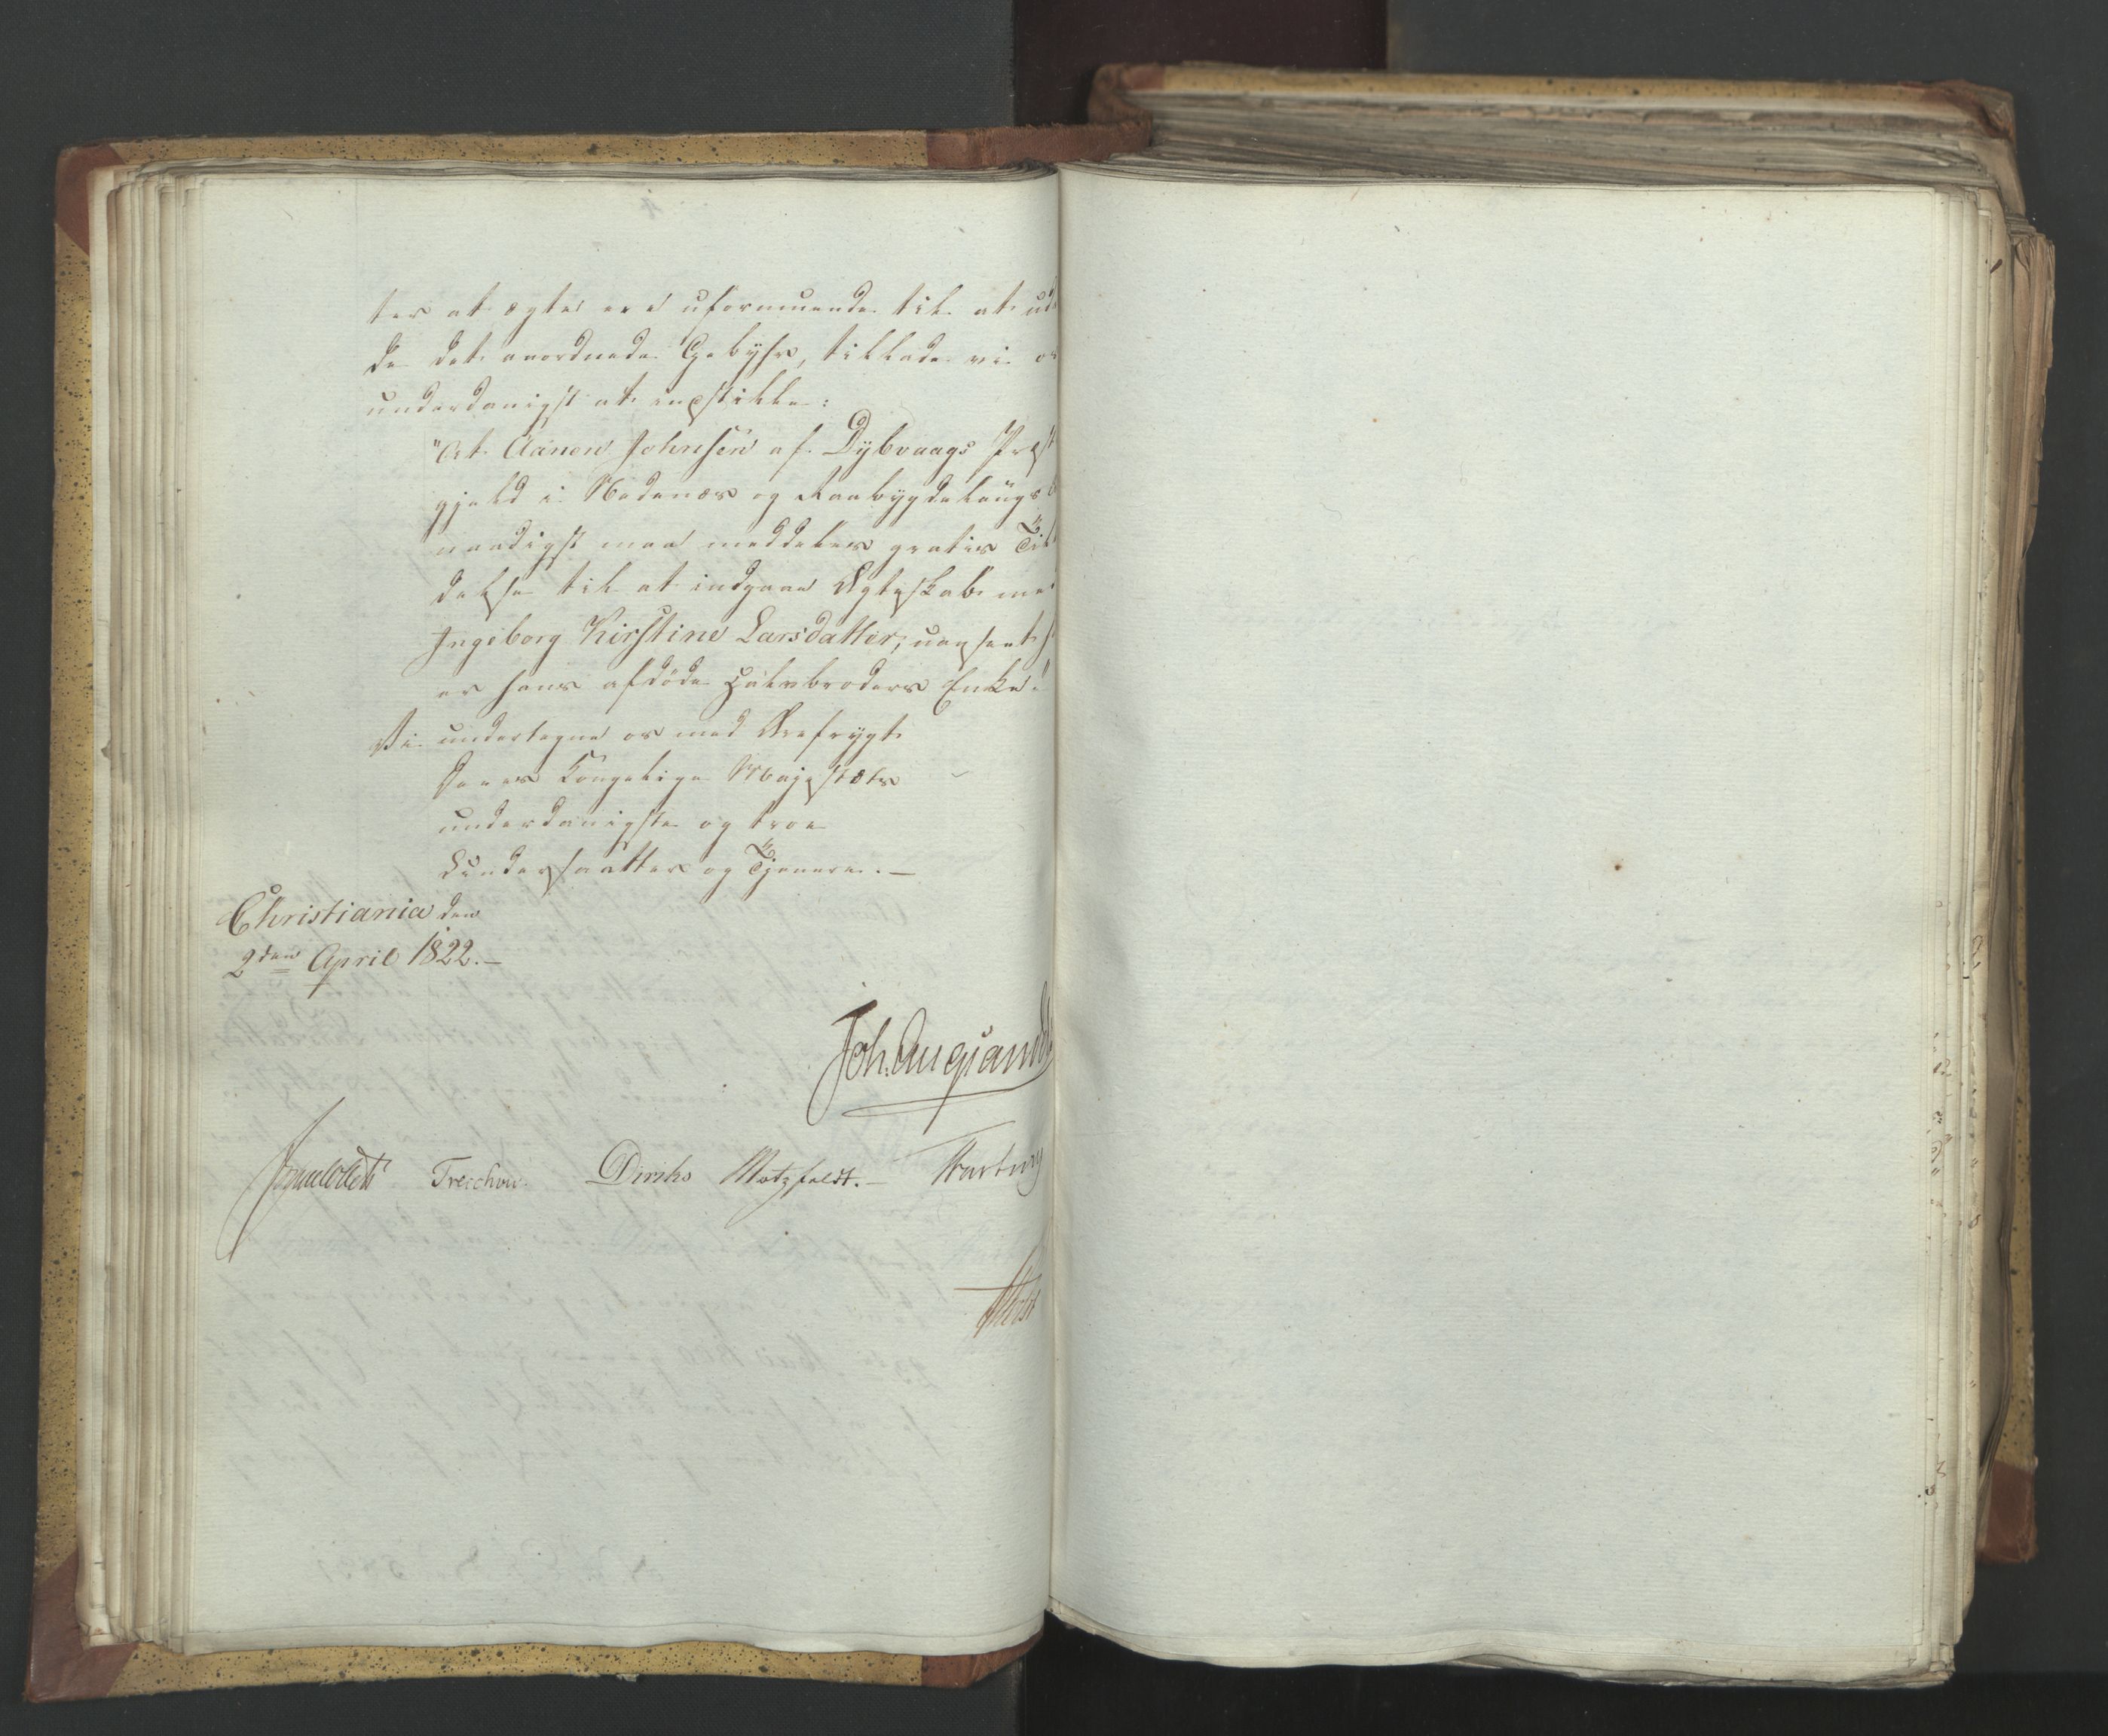 ter at ægte ere uformuende til at ud
de det anordnede Gebyhr, tillade vi os
underdanigst at indstille:
"At Aanon Johnsen af Dybvaags Præst
gjeld i Nedenæs og Raabygdelaugs
naadigst maa meddeles gratis Til
delse til at indgaae Ægteskab med
Ingeborg Kirstine Larsdatter, uanseet
er hans afdöde Halvbroders Enke."
Vi undertegne os med Ærefrygt
Deres Kongelige Majestæts
underdanigste og troe
Undersaatter og Tjenere. —
Christiania den
2den April 1822. —
Joh. Aug Sand
Jonas Collett Treschow. Diriks Motzfeldt. — Hartwig
Holst